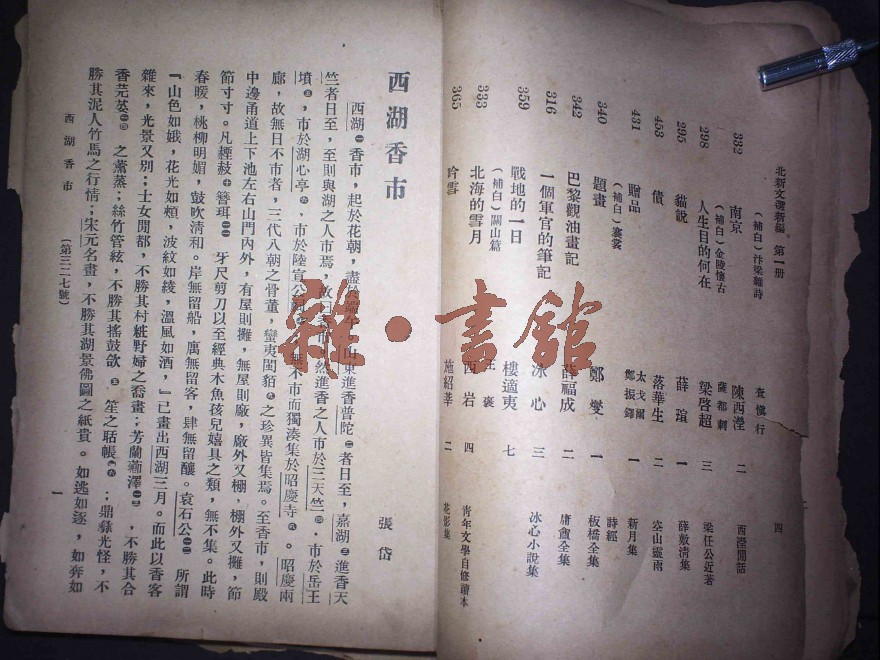 北新文選新編 第一册
四
(補白)汴梁雜詩 查慎行
332 南京 陳西瀅 二 西瀅閒話
(補白)金陵懷古 薩都剌
298 人生目的何在 梁啓超 三 梁任公近著
295 貓說 薛瑄 一 薛敷清集
453 債 落華生 二 空山靈雨
431 贈品 太戈爾 鄭振鐸 一 新月集
(補白)褰裳 詩經
340 題畫 鄭燮 一 板橋全集
342 巴黎觀油畫記 薛福成 二 庸盦全集
316 一個軍官的筆記 冰心 三 冰心小說集
359 戰地的一日 樓適夷 七
(補白)關山篇
333 北海的雪月 西岩 四 青年文學自修讀本
365 吟雪 施紹莘 二 花影集
西湖香市
張岱
西湖㊀香市,起於花朝,盡於端午,山東進香普陀㊁者日至,嘉湖㊂進香天
竺者日至,至則與湖之人市焉,故曰香市。然進香之人市於三天竺㊃,市於岳王
墳㊄,市於湖心亭㊅,市於陸宣公祠㊆,無不市而獨湊集於昭慶寺㊇。昭慶兩
廊,故無日不市者,三代八朝之骨董,蠻夷閩貊㊈之珍異皆集焉。至香市,則殿
中邊甬道上下池左右山門內外,有屋則攤,無屋則廠,廠外又棚,棚外又攤,節
節寸寸。凡㯶𦶜㊉簪珥 牙尺剪刀以至經典木魚孩兒嬉具之類,無不集。此時
春暖,桃柳明媚,鼓吹清和。岸無留船,寓無留客,肆無留釀。袁石公 所謂
『山色如娥,花光如頰,波紋如綾,溫風如酒,』已畫出西湖三月。而此以香客
雜來,光景又別;士女閒都,不勝其村粧野婦之喬畫;芳蘭薌澤 ,不勝其合
香芫荽 之薰蒸;絲竹管絃,不勝其搖鼓欱 笙之聒帳 ;鼎彝光怪,不
勝其泥人竹馬之行情;宋元名畫,不勝其湖景佛圖之紙貴。如逃如逐,如奔如
西湖香市 〔第三二七號〕 一
雜·書館